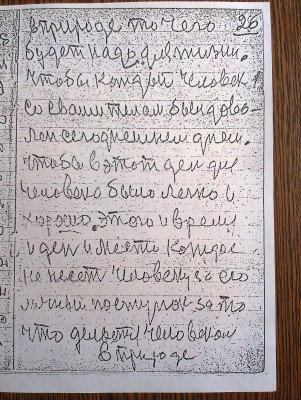 в природе то чего 26
будет надо для жизни.
Чтобы каждый человек
со своим телом был дово-
лен сегодняшнем днем.
чтобы в этот ден для
человека было легко и
хорошо. этого и время
и ден и место
не несет человеку за его
личный поступок за то
что делает человеком
в природе